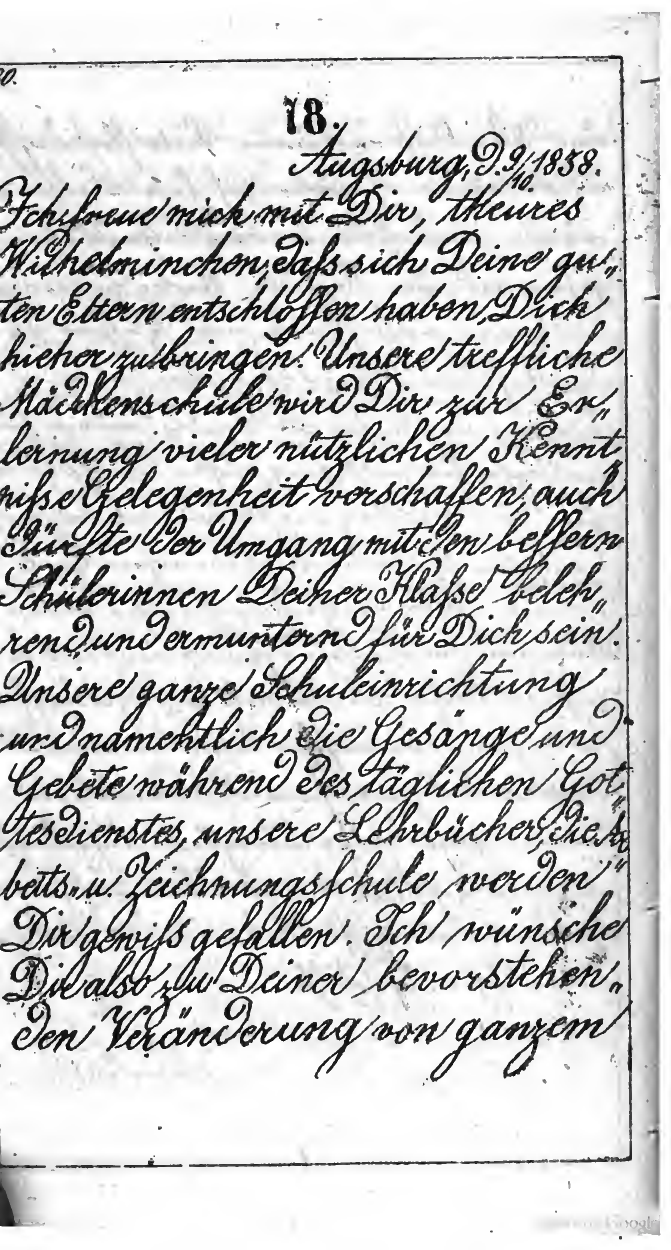 20.
18.
Augsburg, d. 9/10. 1858.
Ich freue mich mit Dir, theures
Wilhelminchen, daſs sich Deine gu„
ten Eltern entschloſſen haben, Dich
hieher zu bringen. Unsere treffliche
Mädchenschule wird Dir zur Er„
lernung vieler nützlichen Kennt„
niſse Gelegenheit verschaffen, auch
dürfte der Umgang mit den beſſern
Schülerinnen Deiner Klaſse beleh„
rend und ermunternd für Dich sein.
Unsere ganze Schuleinrichtung
und namentlich die Gesänge und
Gebete während des täglichen Got„
tesdienstes, unsere Lehrbücher, die Ar„
beits- u. Zeichnungsſchule werden
Dir gewiſs gefallen. Ich wünsche
Dir also zu Deiner bevorstehen„
den Veränderung von ganzem
Google